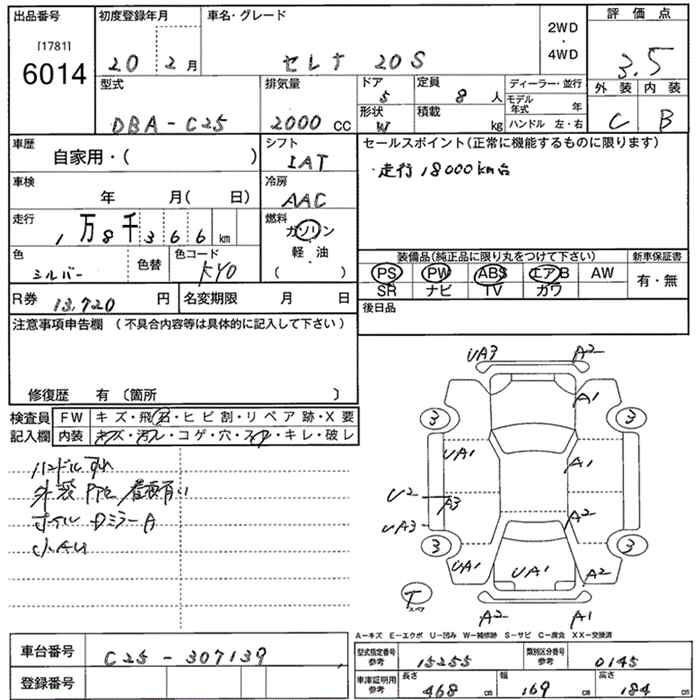 出品番号
[1781]
6014
初度登録年月
20 2月
車名・グレード
セレナ 20S
2WD
・
4WD
評価点
3.5
外装 内装
C B
型式
DBA-C25
排気量
2000 cc
ドア
5
形状
W
定員
8人
積載
kg
ディーラー・並行
モデル年式 年
ハンドル 左・右
車歴
自家用・( )
シフト
IAT
セールスポイント(正常に機能するものに限ります)
・走行18000km台
車検
年 月( 日)
冷房
AAC
走行
1万8千366km
燃料
ガソリン
・
軽油
( )
色
シルバー
色替
色コード
KY0
装備品(純正品に限り丸をつけて下さい)
新車保証書
PS PW ABS エアB AW
SR ナビ TV カワ
有・無
R券 13,720 円
名変期限 月 日
後日品
注意事項申告欄 (不具合内容等は具体的に記入して下さい)
修復歴 有〔箇所 〕
検査員
記入欄
FW キズ・飛石・ヒビ割・リペア跡・X要
内装 キズ・汚レ・コゲ・穴・スレ・キレ・破レ
ハンドルすれ
ホイール Dミラー A
小AU
UA3 A2
A1
3 3
UA1 A1
U2 A3
UA3 A2
3 3
UA1 UA1 A2
T
スペア
A2 A1
A-キズ E-エクボ U-凹み W-補修跡 S-サビ C-腐食 XX-交換済
車台番号 C25-307139
登録番号
型式指定番号
参考
15255
類別区分番号
参考
0145
車庫証明用
参考
長さ 468 cm
幅 169 cm
高さ 184 cm